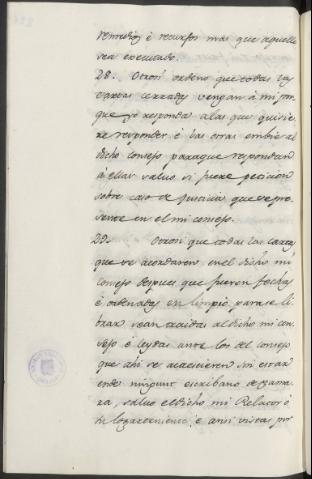 remedios é recursos mas que aquello
sea executado.
28. Otrosi ordeno que todas las
cartas cerradas vengan á mi por
que yo responda alas que quisie
re responder é las otras embie al
dicho consejo paraque respondan
á ellas salvo si fuere peticion
sobre caso de justicia que se pre
sente en el mi consejo.
29. Otrosi que todas las cartas
que se acordaren en el dicho mi
consejo despues que fueren fechas
é ordenadas en limpio para se li
brar sean traidas al dicho mi con
sejo é leydas ante los del consejo
que ahi se acaescieren sin estar
ende ningunt escribano de cama
ra, salvo el dicho mi Relator ó
su logarteniente, é ansi vistas por